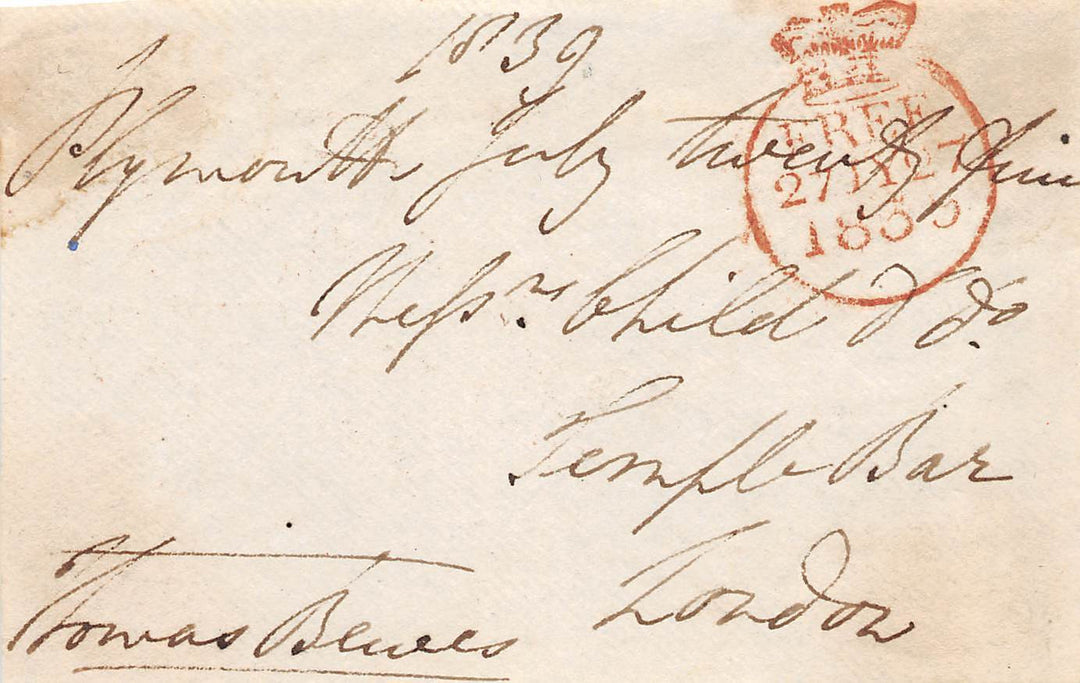 1839
Plymouth July twenty five
Messrs. Child & Co.
Temple Bar
London
Thomas Bewes
FREE
27 JY 27
1835